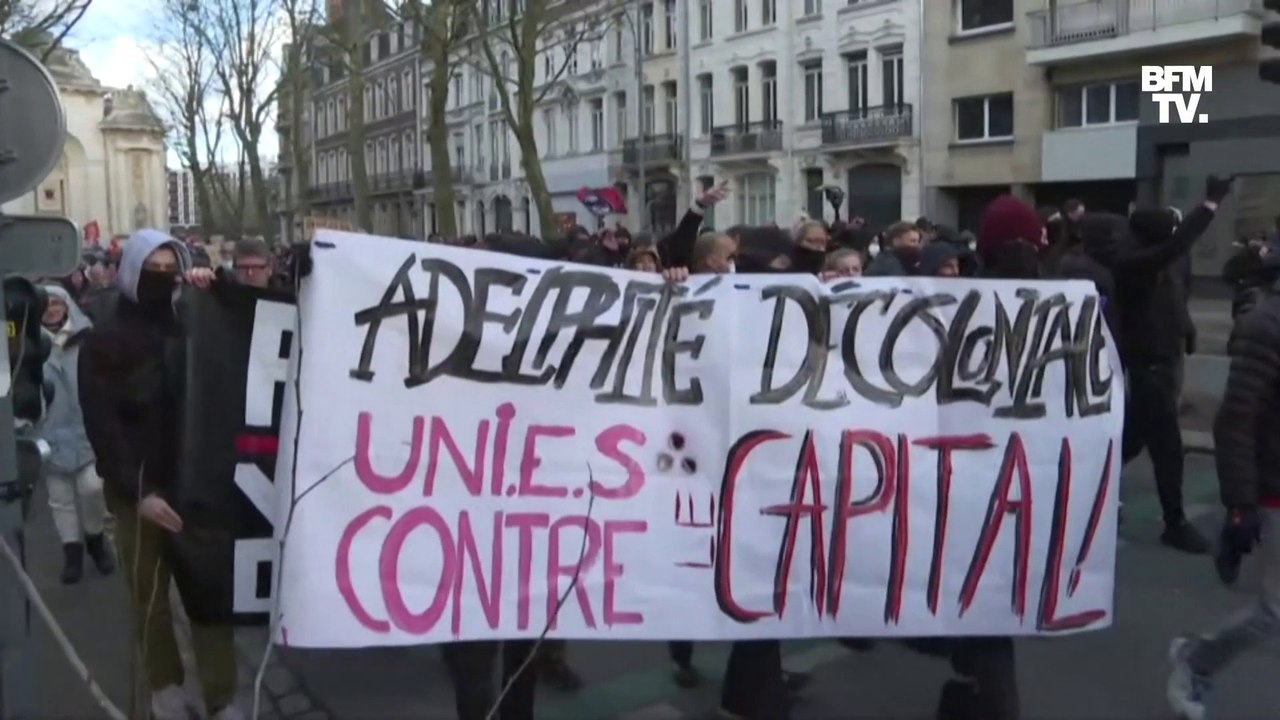 BFM
TV.
ADELPHITÉ DÉCOLONIALE
UNI.E.S
CONTRE LE CAPITAL!